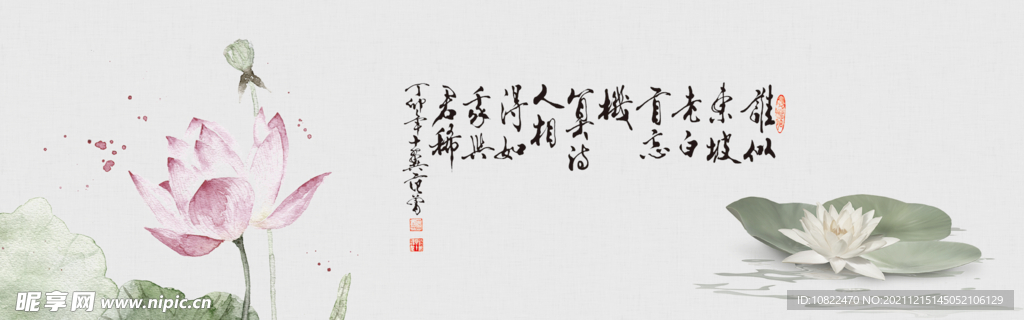 誰似
東坡
老白
首忘
機
算詩
人相
得如
我與
君稀
丁卯年十翼范曾
昵享网 www.nipic.cn
ID:10822470 NO:20211215145052106129